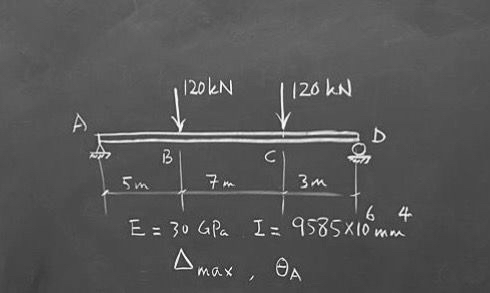 120kN 120kN
A D
B C
5m 7m 3m
E = 30 GPa I = 9585×10⁶ mm⁴
Δmax , θA